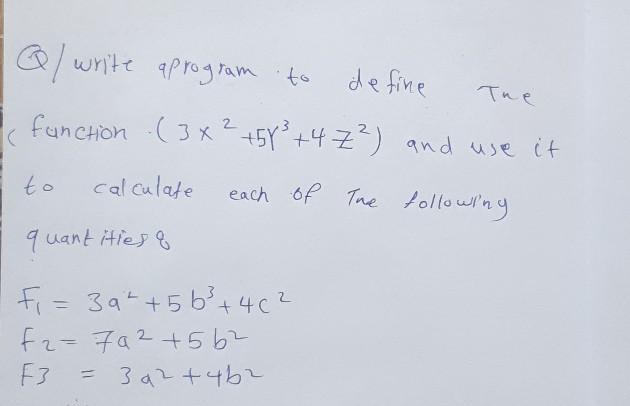 Q/ write a program to define The
function (3x² +5Y³ +4 Z²) and use it
to calculate each of The following
quantities :
F₁ = 3a² + 5b³ + 4c²
f₂ = 7a² + 5b²
F3 = 3a² + 4b²